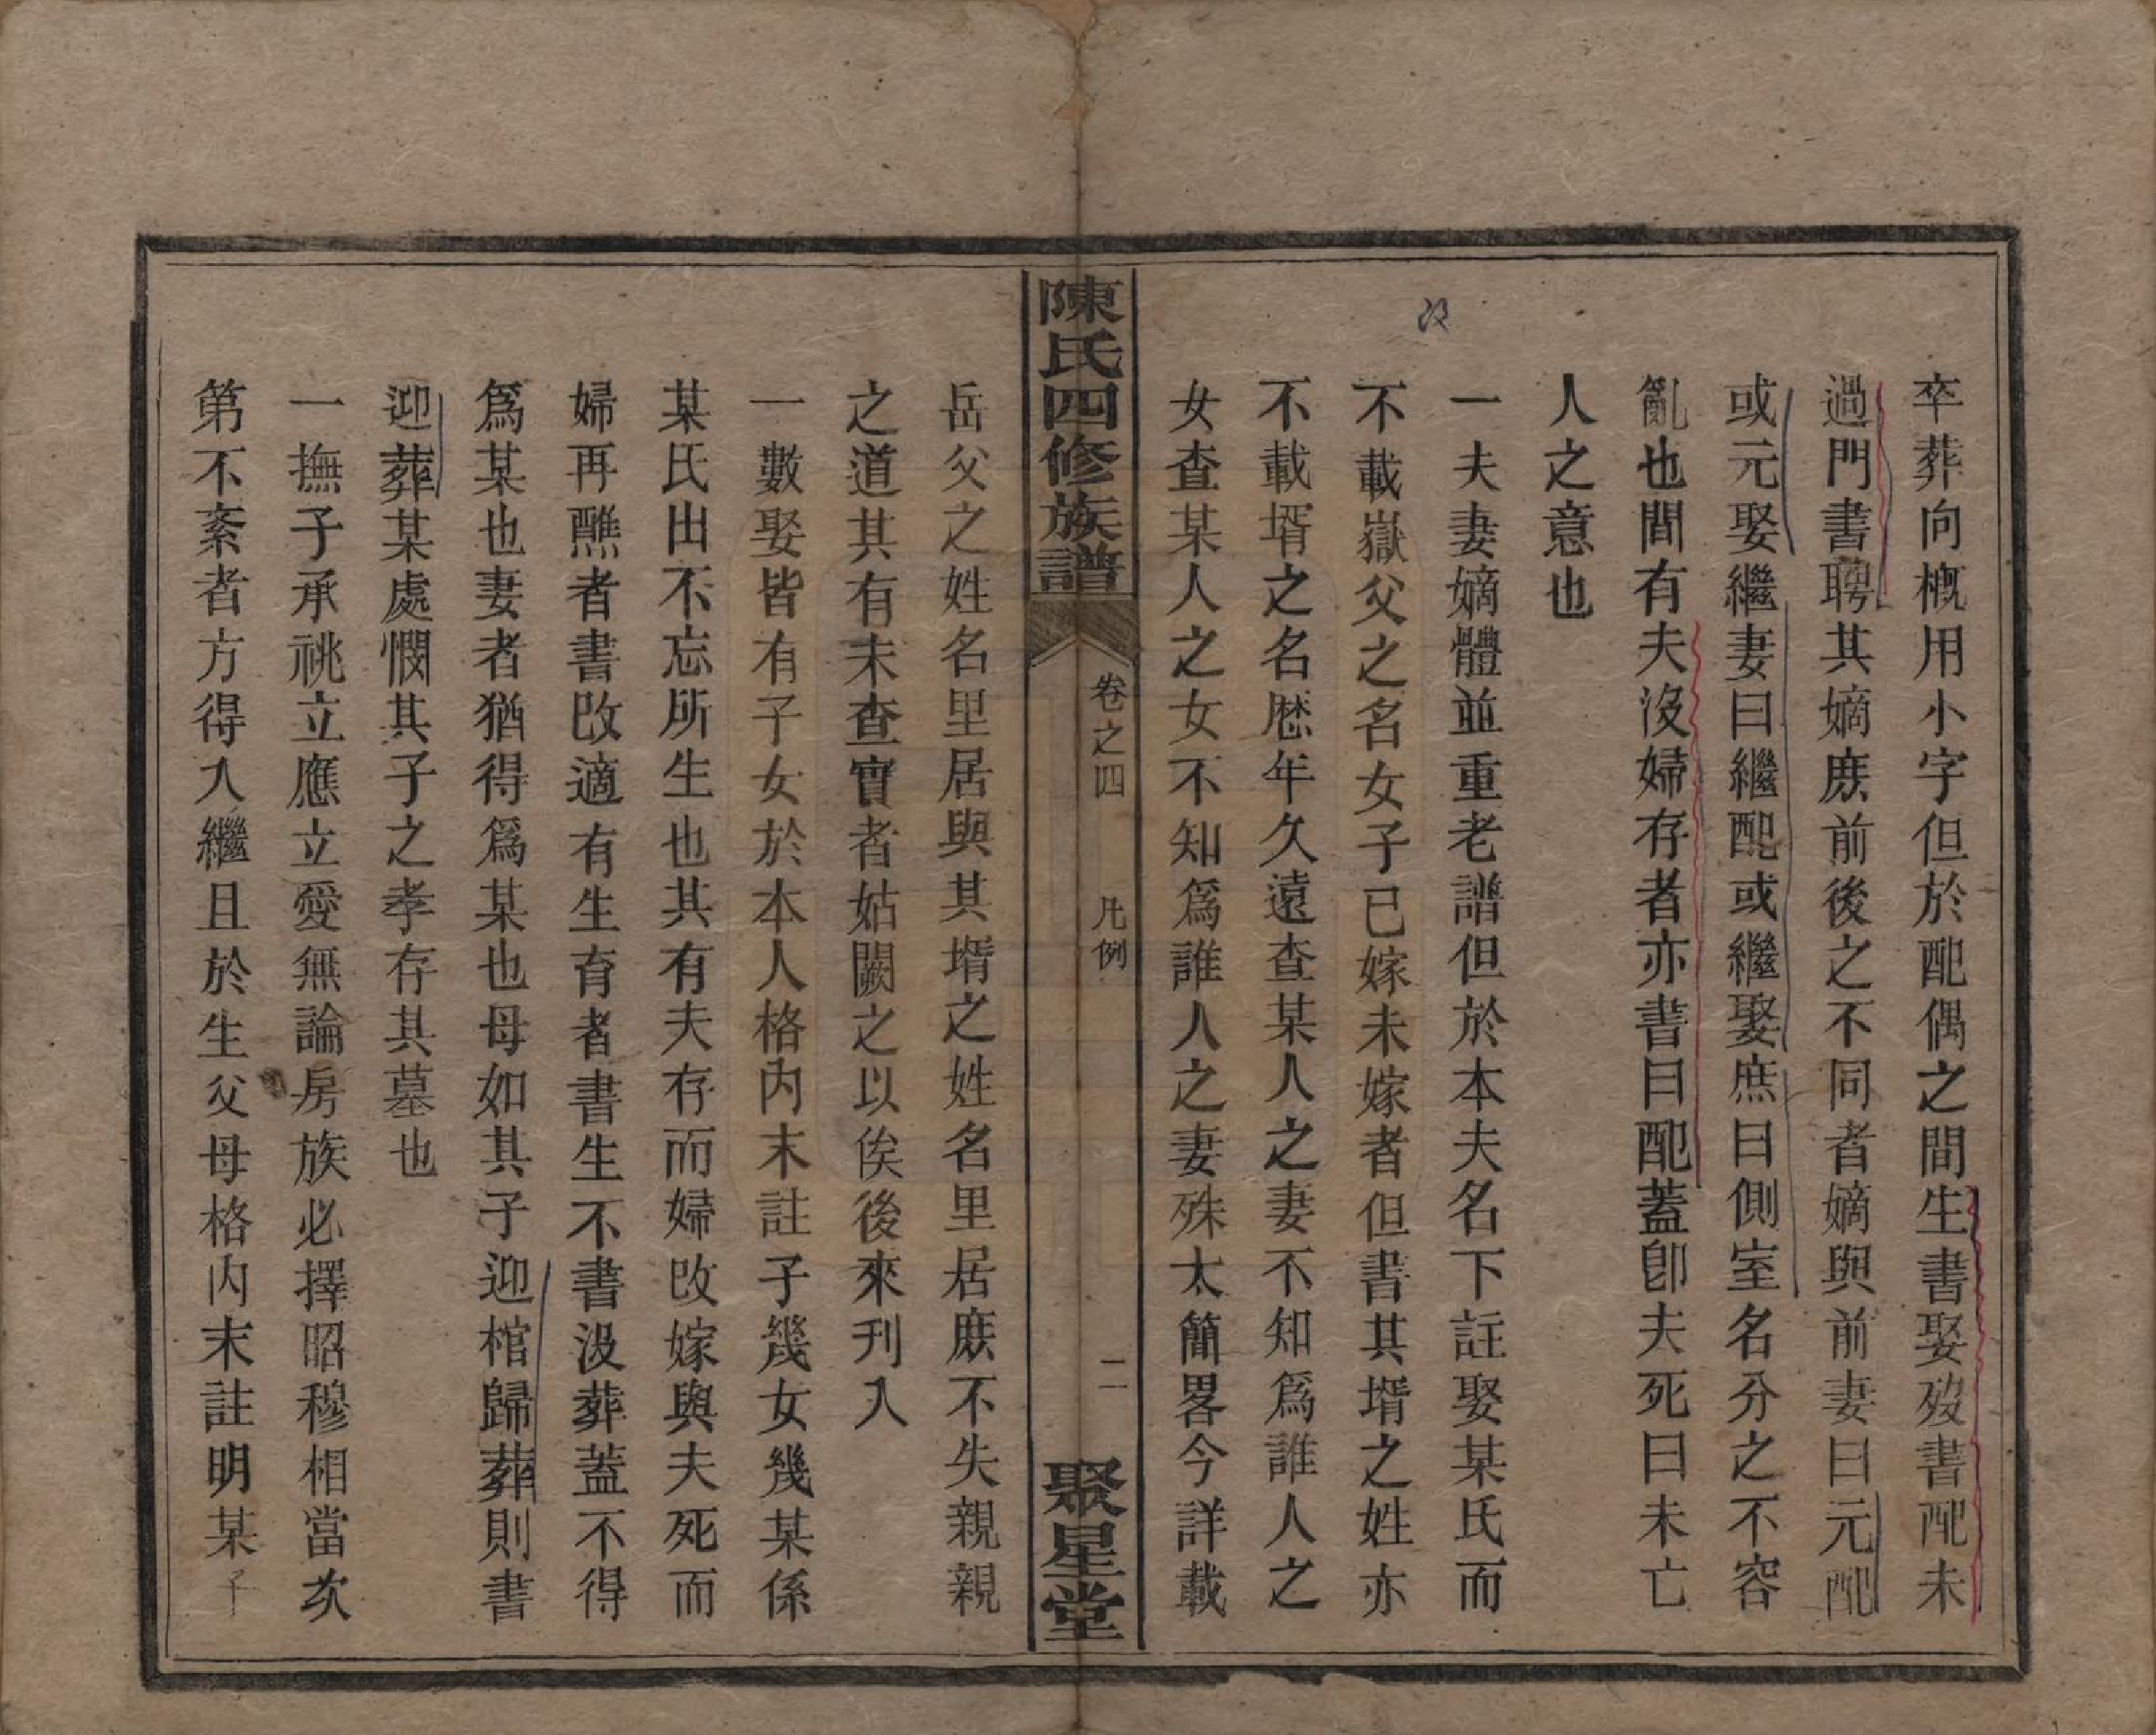 卒葬向概用小字但於配偶之間生書娶歿書配未
過門書聘其嫡庶前後之不同者嫡與前妻曰元配
或元娶繼妻曰繼配或繼娶庶曰側室名分之不容
亂也間有夫沒婦存者亦書曰配蓋卽夫死曰未亡
人之意也
一夫妻嫡體並重老譜但於本夫名下註娶某氏而
不載嶽父之名女子已嫁未嫁者但書其壻之姓亦
不載壻之名歷年久遠查某人之妻不知爲誰人之
女查某人之女不知爲誰人之妻殊太簡畧今詳載
陳氏四修族譜
卷之四
凡例
二
聚星堂
岳父之姓名里居與其壻之姓名里居庶不失親親
之道其有未查實者姑闕之以俟後來刊入
一數娶皆有子女於本人格内末註子幾女幾某係
某氏出不忘所生也其有夫存而婦改嫁與夫死而
婦再醮者書改適有生育者書生不書沒葬蓋不得
爲某也妻者猶得爲某也母如其子迎棺歸葬則書
迎葬某處憫其子之孝存其墓也
一撫子承祧立應立愛無論房族必擇昭穆相當次
第不紊者方得入繼且於生父母格内末註明某子